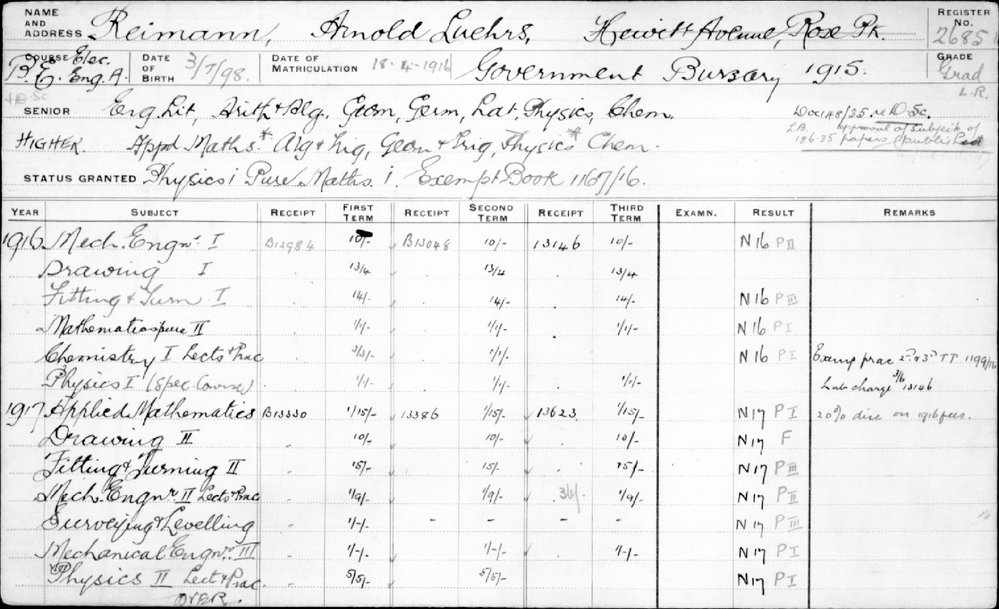 NAME AND ADDRESS Reimann, Arnold Luehrs, Hewitt Avenue, Rose Pk. REGISTER No. 2685
COURSE Elec. B.E. Eng. A. DATE OF BIRTH 3/7/98. DATE OF MATRICULATION 18-4-1916 Government Bursary 1915. GRADE Grad L.R.
SENIOR Eng Lit, Arith & Alg, Geom, Germ, Lat, Physics, Chem. re D.Sc. approval of subject of
HIGHER Appd Maths* Alg & Trig, Geom & Trig, Physics* Chem. papers
STATUS GRANTED Physics I Pure Maths. I. Exempt Book 1167/16.
YEAR SUBJECT RECEIPT FIRST TERM RECEIPT SECOND TERM RECEIPT THIRD TERM EXAMN. RESULT REMARKS
1916 Mech. Engnr. I B12984 10/- B13048 10/- 13146 10/- N16 PII
Drawing I 13/4 13/4 13/4
Fitting & Turn I 14/- 14/- 14/- N16 PIII
Mathematics pure II 1/1/- 1/1/- 1/1/- N16 PI
Chemistry I Lects & Prac 3/3/- N16 PI Exemp prac 2nd & 3rd TT 1199/16
Physics I (Spec. Course) 1/1/- 1/1/- 1/1/- Lab charge 3/6 13146
1917 Applied Mathematics B13330 1/15/- 13386 1/15/- 13623 1/15/- N17 PI 20% disc on 1916 fees.
Drawing II 10/- 10/- 10/- N17 F
Fitting & Turning II 15/- 15/- 15/- N17 PIII
Mech. Engnr II Lects & Prac 1/9/- 1/9/- 1/9/- N17 PII
Surveying & Levelling 1/-/- - - - N17 PIII
Mechanical Engnr. III 1/-/- 1/-/- 1/-/- N17 PI
Physics II Lect & Prac 5/5/- 5/5/- N17 PI
OVER.